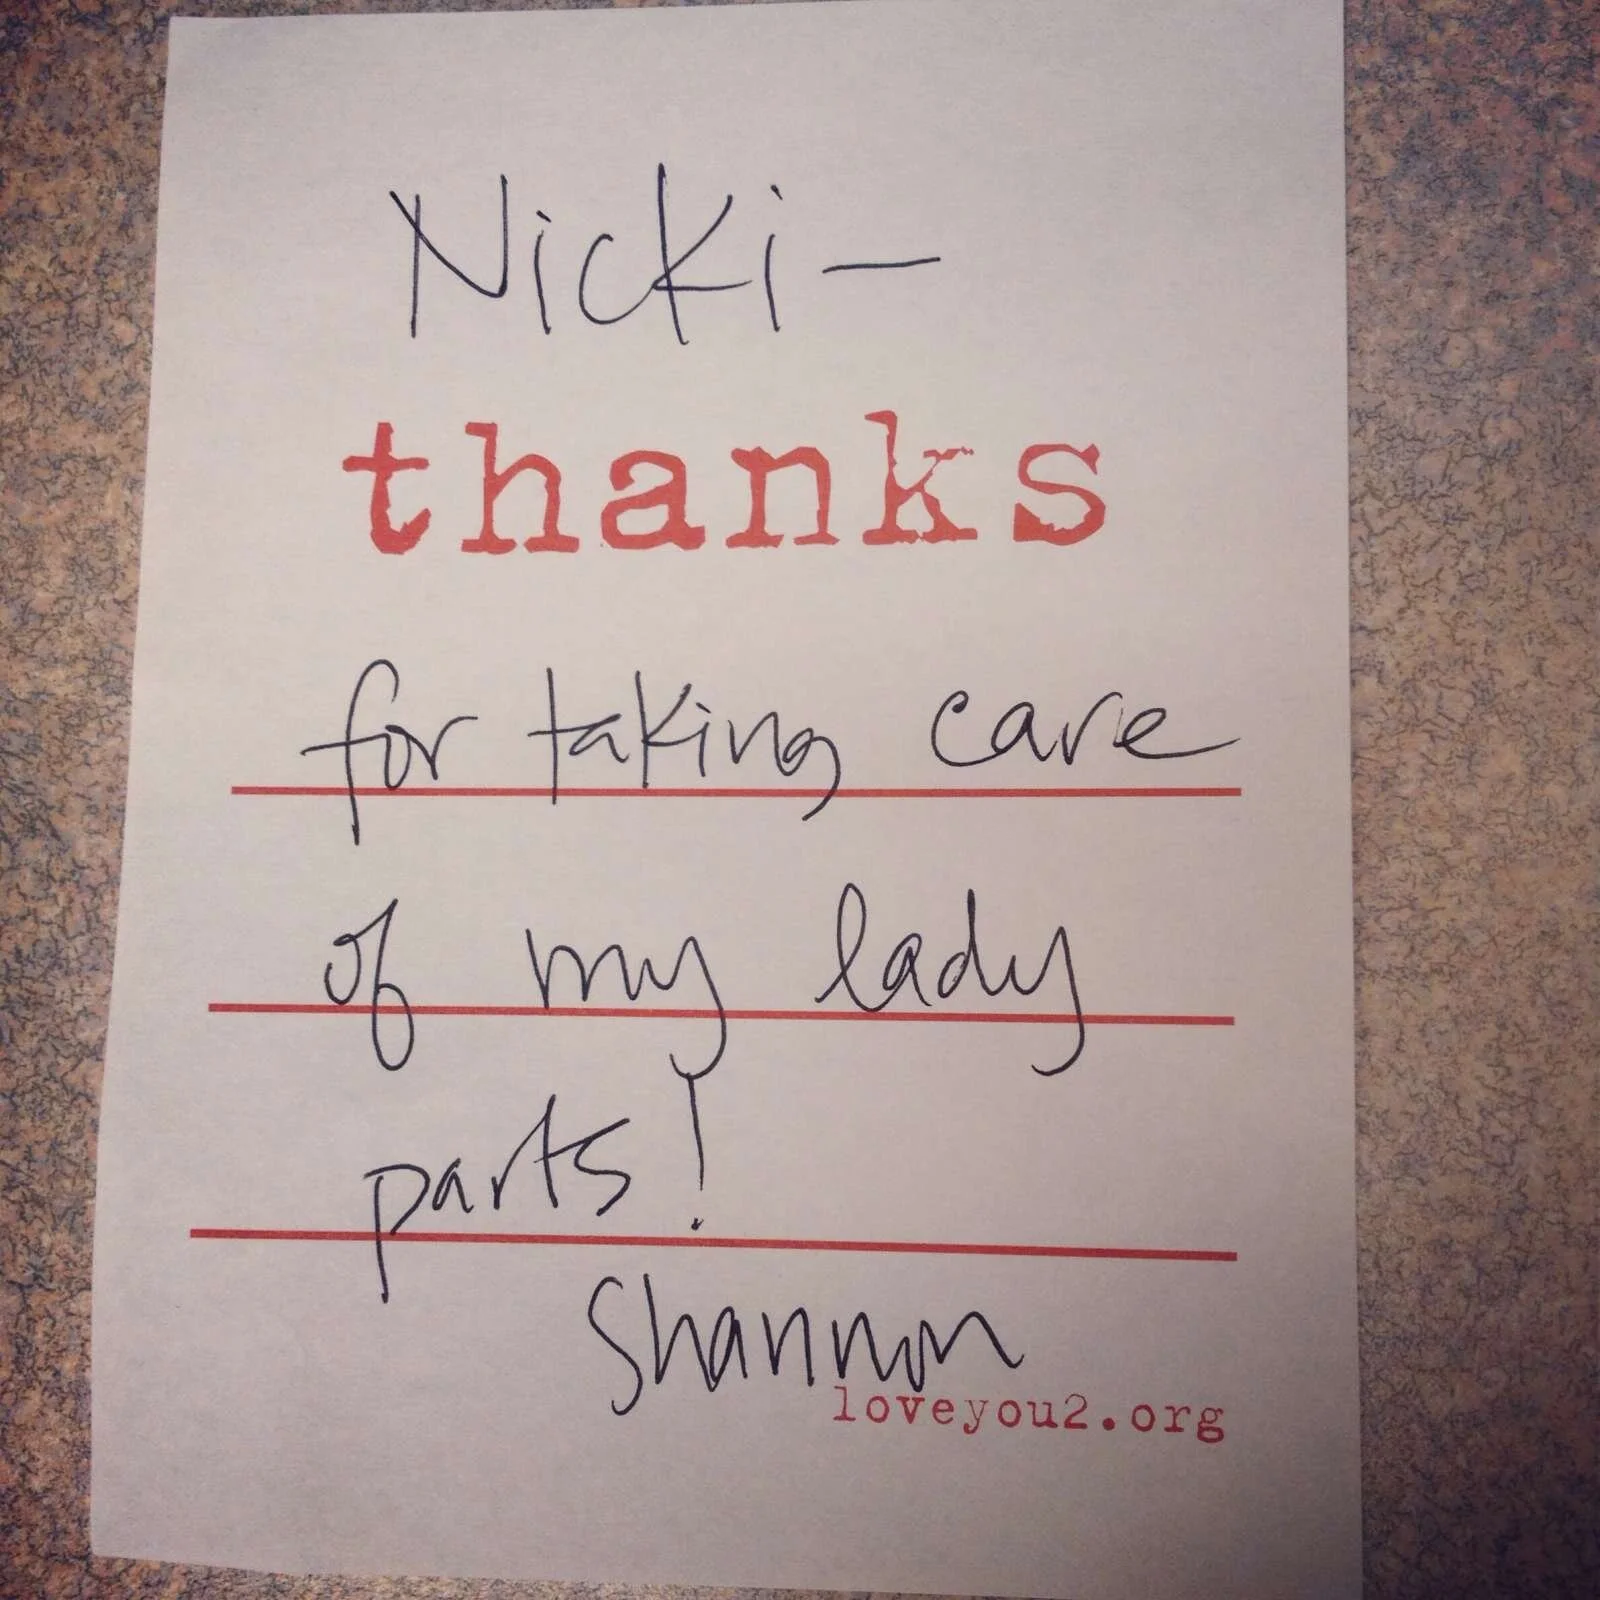 Nicki—
thanks
for taking care
of my lady
parts!
Shannon
loveyou2.org